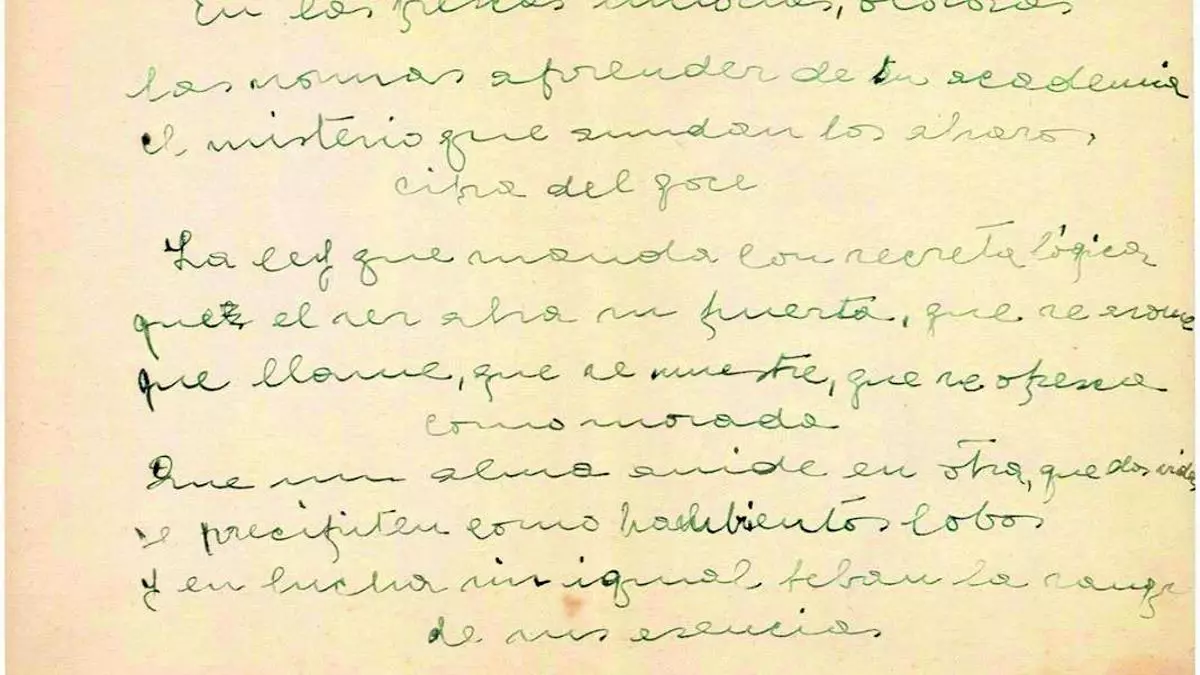 En las frescas umbrías, olorosas
las normas aprender de tu academia
el misterio que anudan los abrazos,
cifra del goce
La ley que manda con secreta lógica
que el ser abra su puerta, que se asome
que llame, que se muestre, que se ofresca
como morada
Que un alma anide en otra, que dos vidas
se precipiten como hambrientos lobos
Y en lucha sin igual beban la sangre
de sus esencias